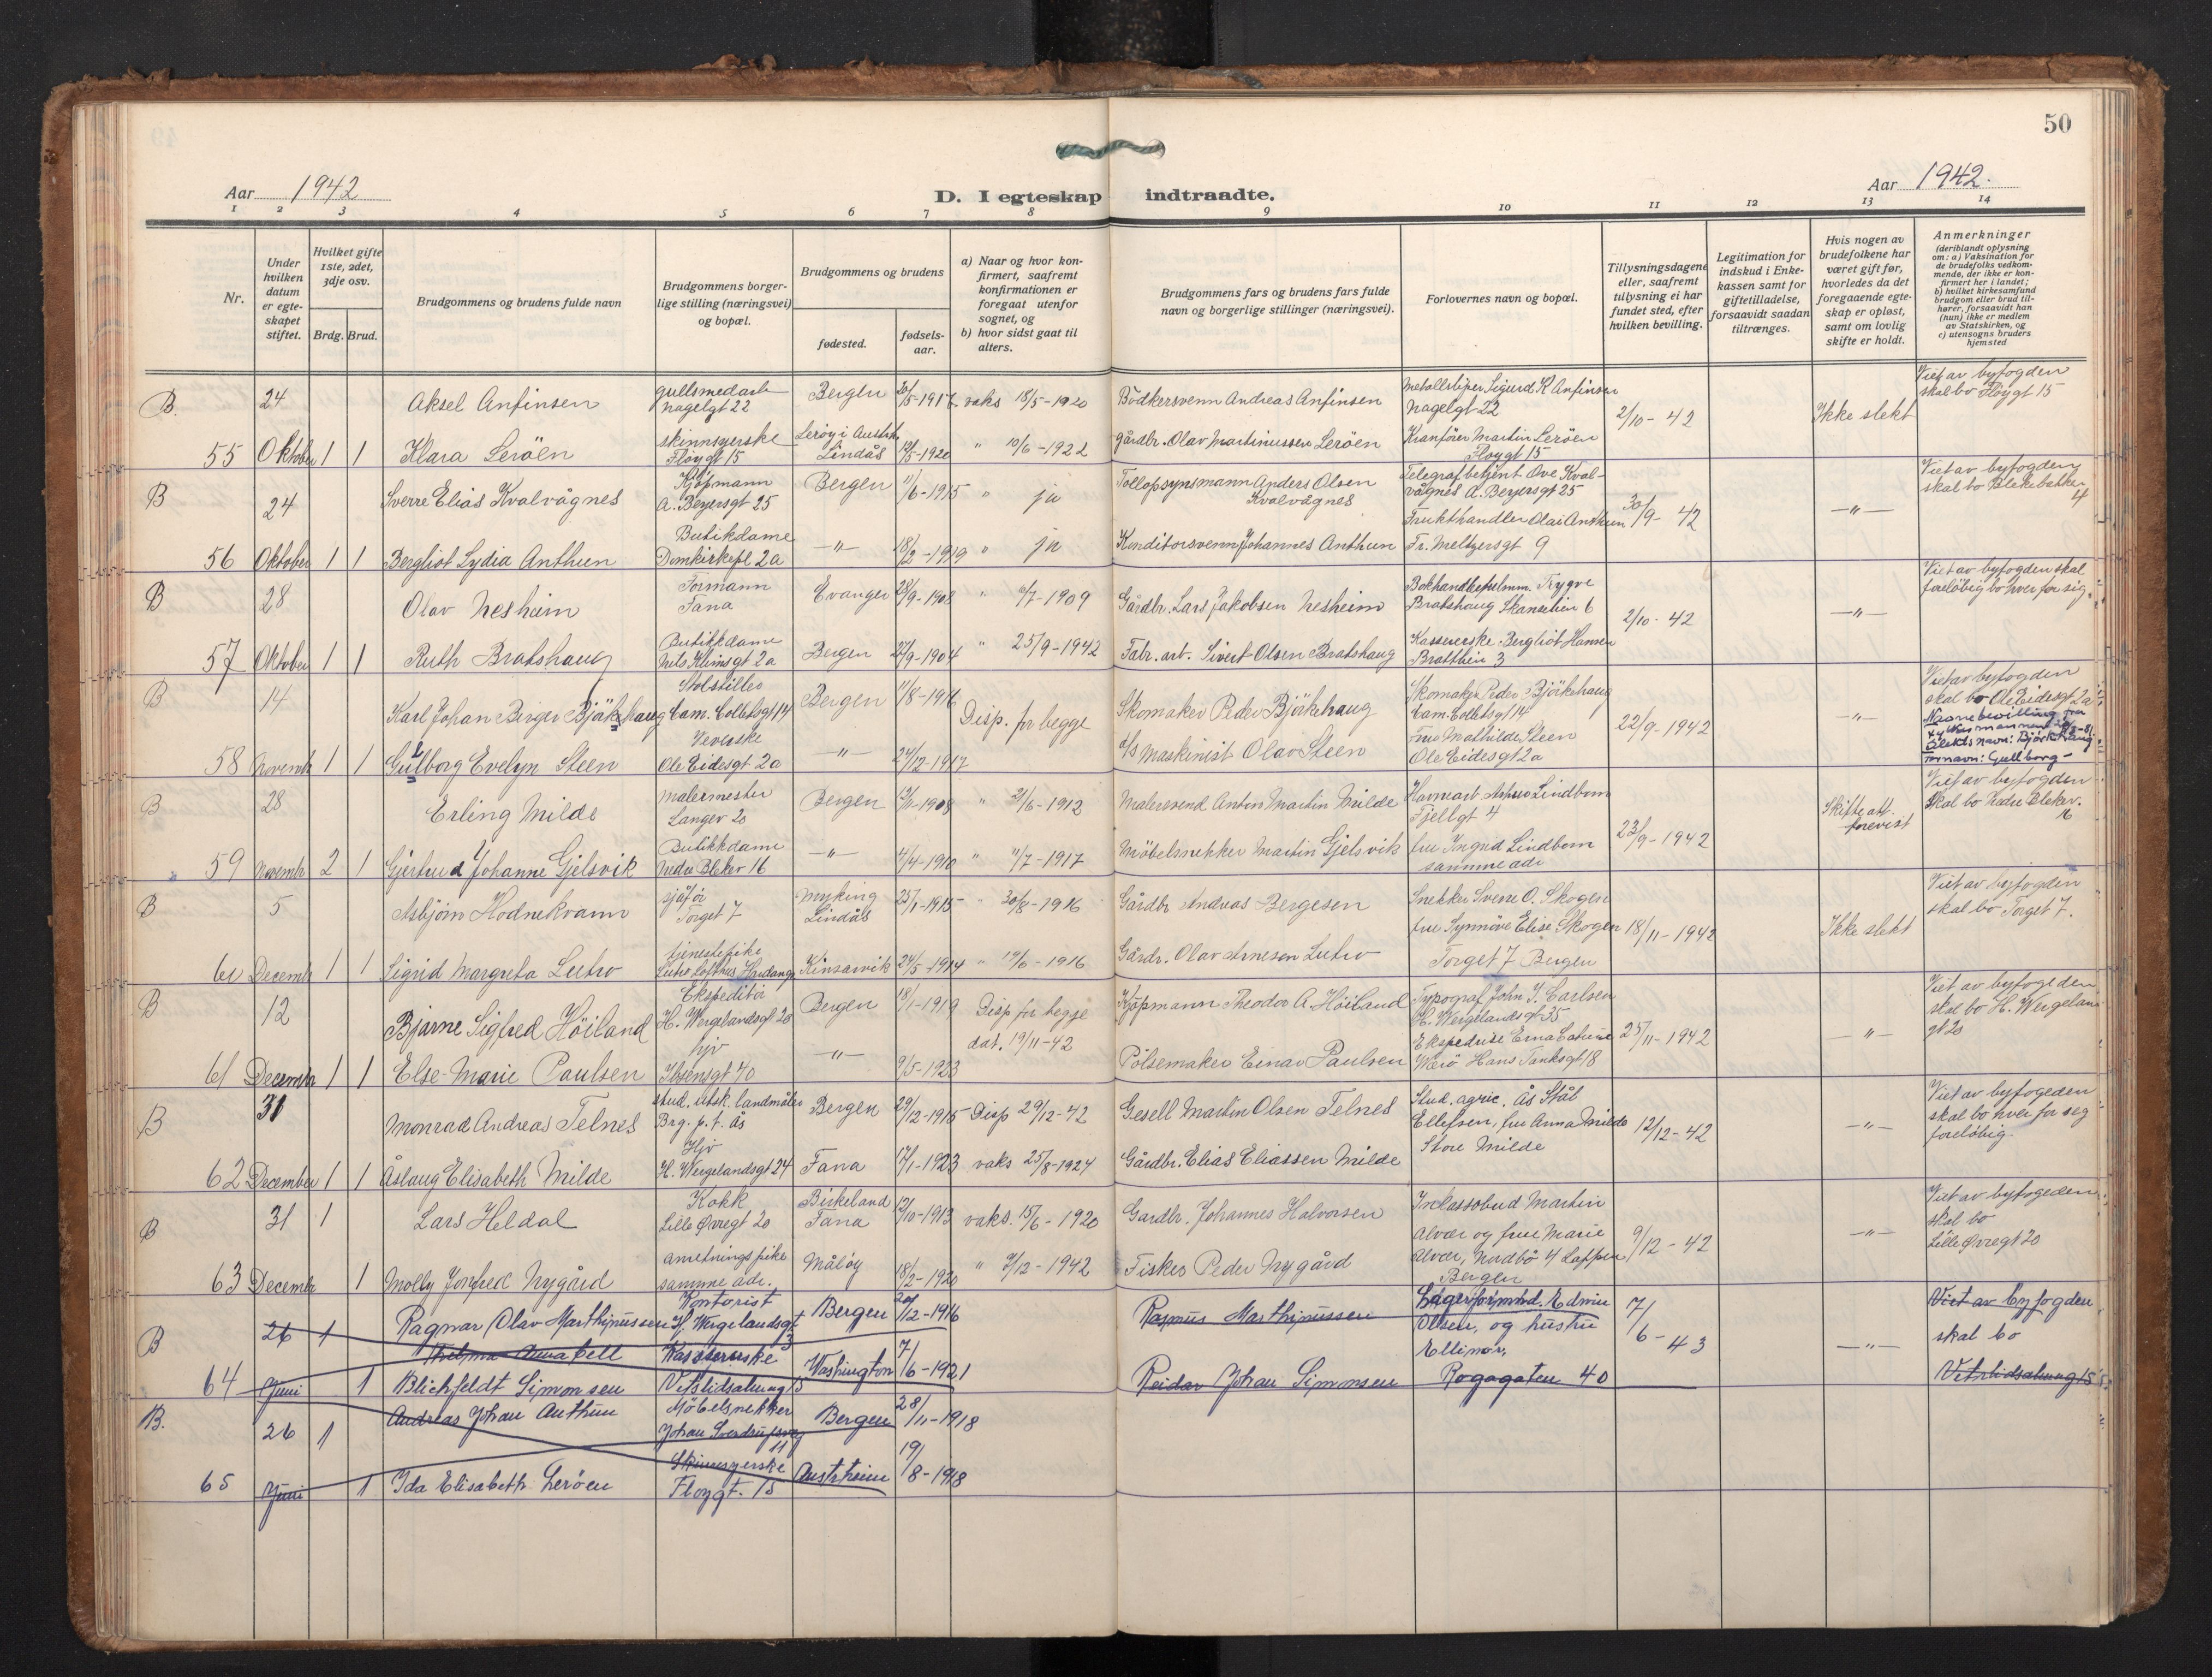 50
Aar 1942
D. I egteskap indtraadte.
Aar 1942.
1 2 3 4 5 6 7 8 9 10 11 12 13 14
Nr.
Under hvilken datum er egteskapet stiftet.
Hvilket gifte 1ste, 2det, 3dje osv.
Brdg. Brud.
Brudgommens og brudens fulde navn
Brudgommens borgerlige stilling (næringsvei) og bopæl.
Brudgommens og brudens
fødested.
fødselsaar.
a) Naar og hvor konfirmert, saafremt konfirmationen er foregaat utenfor sognet, og
b) hvor sidst gaat til alters.
Brudgommens fars og brudens fars fulde navn og borgerlige stillinger (næringsvei).
Forlovernes navn og bopæl.
Tillysningsdagene eller, saafremt tillysning ei har fundet sted, efter hvilken bevilling.
Legitimation for indskud i Enkekassen samt for giftetilladelse, forsaavidt saadan tiltrænges.
Hvis nogen av brudefolkene har været gift før, hvorledes da det foregaaende egteskap er opløst, samt om lovlig skifte er holdt.
Anmerkninger
(deriblandt oplysning om: a) Vaksination for de brudefolks vedkommende, der ikke er konfirmert her i landet; b) hvilket kirkesamfund brudgom eller brud tilhører, forsaavidt han (hun) ikke er medlem av Statskirken, og c) utensogns bruders hjemsted
B. 24 Aksel Anfinsen gullsmedarb Nagelgt 22 Bergen 20/5-1917 vaks 18/5-1920 Bödkersvenn Andreas Anfinsen Metallsliper Sigurd K Anfinsen Nagelgt 22 2/10-42 Ikke slekt Viet av byfogden skal bo Fløygt 15
55 Oktober 1 1 Klara Leröen skinnsyerske Fløygt 15 Lerøy i Austrh. Lindås 12/5-1920 " 10/6-1922 gårdbr. Olav Martinussen Leröen Kranfører Martin Leröen Fløygt 15
B 24 Sverre Elias Kvalvågnes Kjøpmann A. Beyersgt 25 Bergen 11/6-1915 " ja Tollopsynsmann Anders Olsen Kvalvågnes Telegrafbetjent Ove Kvalvågnes A. Beyersgt 25 30/9-42 -"- Viet av byfogden skal bo Blekebakken 4
56 Oktober 1 1 Bergliot Lydia Anthun Butikdame Domkirkepl 2a -"- 18/2-1919 " ja Konditorsvenn Johannes Anthun Frukthandler Olai Anthun Fr. Meltzersgt 9
B 28 Olav Nesheim Formann Fana Evanger 28/9-1908 " 11/7-1909 Gårdbr. Lars Jakobsen Nesheim Trygve Bratshaug Skanselien 6 2/10-42 -"- Viet av byfogden skal foreløbig bo hver for sig.
57 Oktober 1 1 Ruth Bratshaug Butikkdame Nels Klimsgt 2a Bergen 27/9-1904 " 25/9-1942 Fabr. arb. Sivert Olsen Bratshaug Kassererske Bergliot Hansen Brattlien 3
B 14 Karl Johan Birger Björkehaug Cam. Colletsgt 14 Bergen 11/8-1916 Disp. for begge Skomaker Peder Björkehaug Skomaker Peder Björkehaug Cam Colletsgt 14 22/9-1942 -"- Viet av byfogden skal bo Ole Eidesgt 2a
58 Novemb 1 1 Gulborg Evelyn Steen Veverske Ole Eidesgt 2a -"- 24/12-1917 Maskinist Olav Steen fru Mathilde Steen Ole Eidesgt 2a Navnebevilling fra Slektsnavn: Björkhaug Fornavn: Gullborg-
B 28 Erling Milde Malermester Langev 20 Bergen 12/11-1908 " 21/6-1912 Malersvend Anton Martin Milde Havnearb Lindbom Fjellgt 4 23/9-1942 Skifteatt. forevist Viet av byfogden skal bo Nedre Blekev. 16
59 Novemb 2 1 Gjertrud Johanne Gjelsvik Butikkdame Nedre Blekev 16 -"- 4/4-1910 " 11/7-1917 Möbelsnekker Martin Gjelsvik fru Ingrid Lindbom samme adr
B 5 Asbjörn Hodnekvam sjåför Torget 7 Myking Lindås 25/1-1915 " 30/8-1916 Gårdbr Andreas Bergesen Snekker Sverre O. Skogen fru Synnöve Elise Skogen 18/11-1942 Ikke slekt Viet av byfogden skal bo Torget 7.
60 Decemb 1 1 Sigrid Margreta Lutro tjenestepike Lutro Lofthus Hardanger Kinsarvik 24/5-1914 " 19/6-1916 Gårdr. Olav Arnesen Lutro Torget 7 Bergen
B 12 Bjarne Sigfred Höiland Ekspeditør H. Wergelandsgt 20 Bergen 18/1-1919 Disp for begge dat. 19/11-42 Kjøpmann Theodor A. Höiland Typograf John J. Carlsen H. Wergelandsgt 35 25/11-1942 -"- Viet av byfogden skal bo H. Wergelands gt 20
61 Decemb 1 1 Else-Marie Paulsen hjv Ibsensgt 40 -"- 9/5-1923 Pölsemaker Einar Paulsen Ekspeditrise Erna Hans Tanksgt 18
B 31 Monrad Andreas Telnes stud. utsk. landmåler Brg. p.t. Ås Bergen 29/12-1915 Disp 29/12-42 Gesell Martin Olsen Telnes Stud. agric. Ås Stål Ellefsen, fru Anna Milde 12/12-42 -"- Viet av byfogden skal bo hver for seg foreløbig.
62 December 1 1 Åslaug Elisabeth Milde Hjv H. Wergelandsgt 24 Fana 17/1-1923 vaks 25/8-1924 Gårdbr. Elias Eliassen Milde Store Milde
B 31 1 Lars Heldal Kokk Lille Øvregt 20 Birkeland Fana 12/10-1913 vaks. 15/6-1920 Gardbr. Johannes Halvorsen Inkassobud Martin Alvær og frue Marie 9/12-42 -"- Viet av byfogden skal bo Lille Øvregt 20
63 Decemb 1 Molly Jonfred Nygård anretningspike samme adr. Måløy 18/2-1920 " 7/12-1942 Fisker Peder Nygård Alvær, Nordbö 4 Lappen Bergen
B 26 1 Ragnar Olav Marthinussen Kontorist H. Wergelandsgt 3 Bergen 20/12-1916 Rasmus Marthinussen Lagerformnd. Edmin Olsen, og hustru Ellinor, 7/6-43 -"- Viet av byfogden skal bo Vetrlidsalmng 15
64 Juni 1 Thelma Annabell Blichfeldt Simonsen Kassererske Vetrlidsalmng 15 Washington 7/6-1921 Reidar Johan Simonsen Rogagaten 40
B. 26 1 Andreas Johan Anthun Möbelsnekker Johan Sverdrupsvg 11 Bergen 28/11-1918
65 Juni 1 Ida Elisabeth Leröen Skinnsyerske Fløygt. 15 Austrheim 19/8-1918